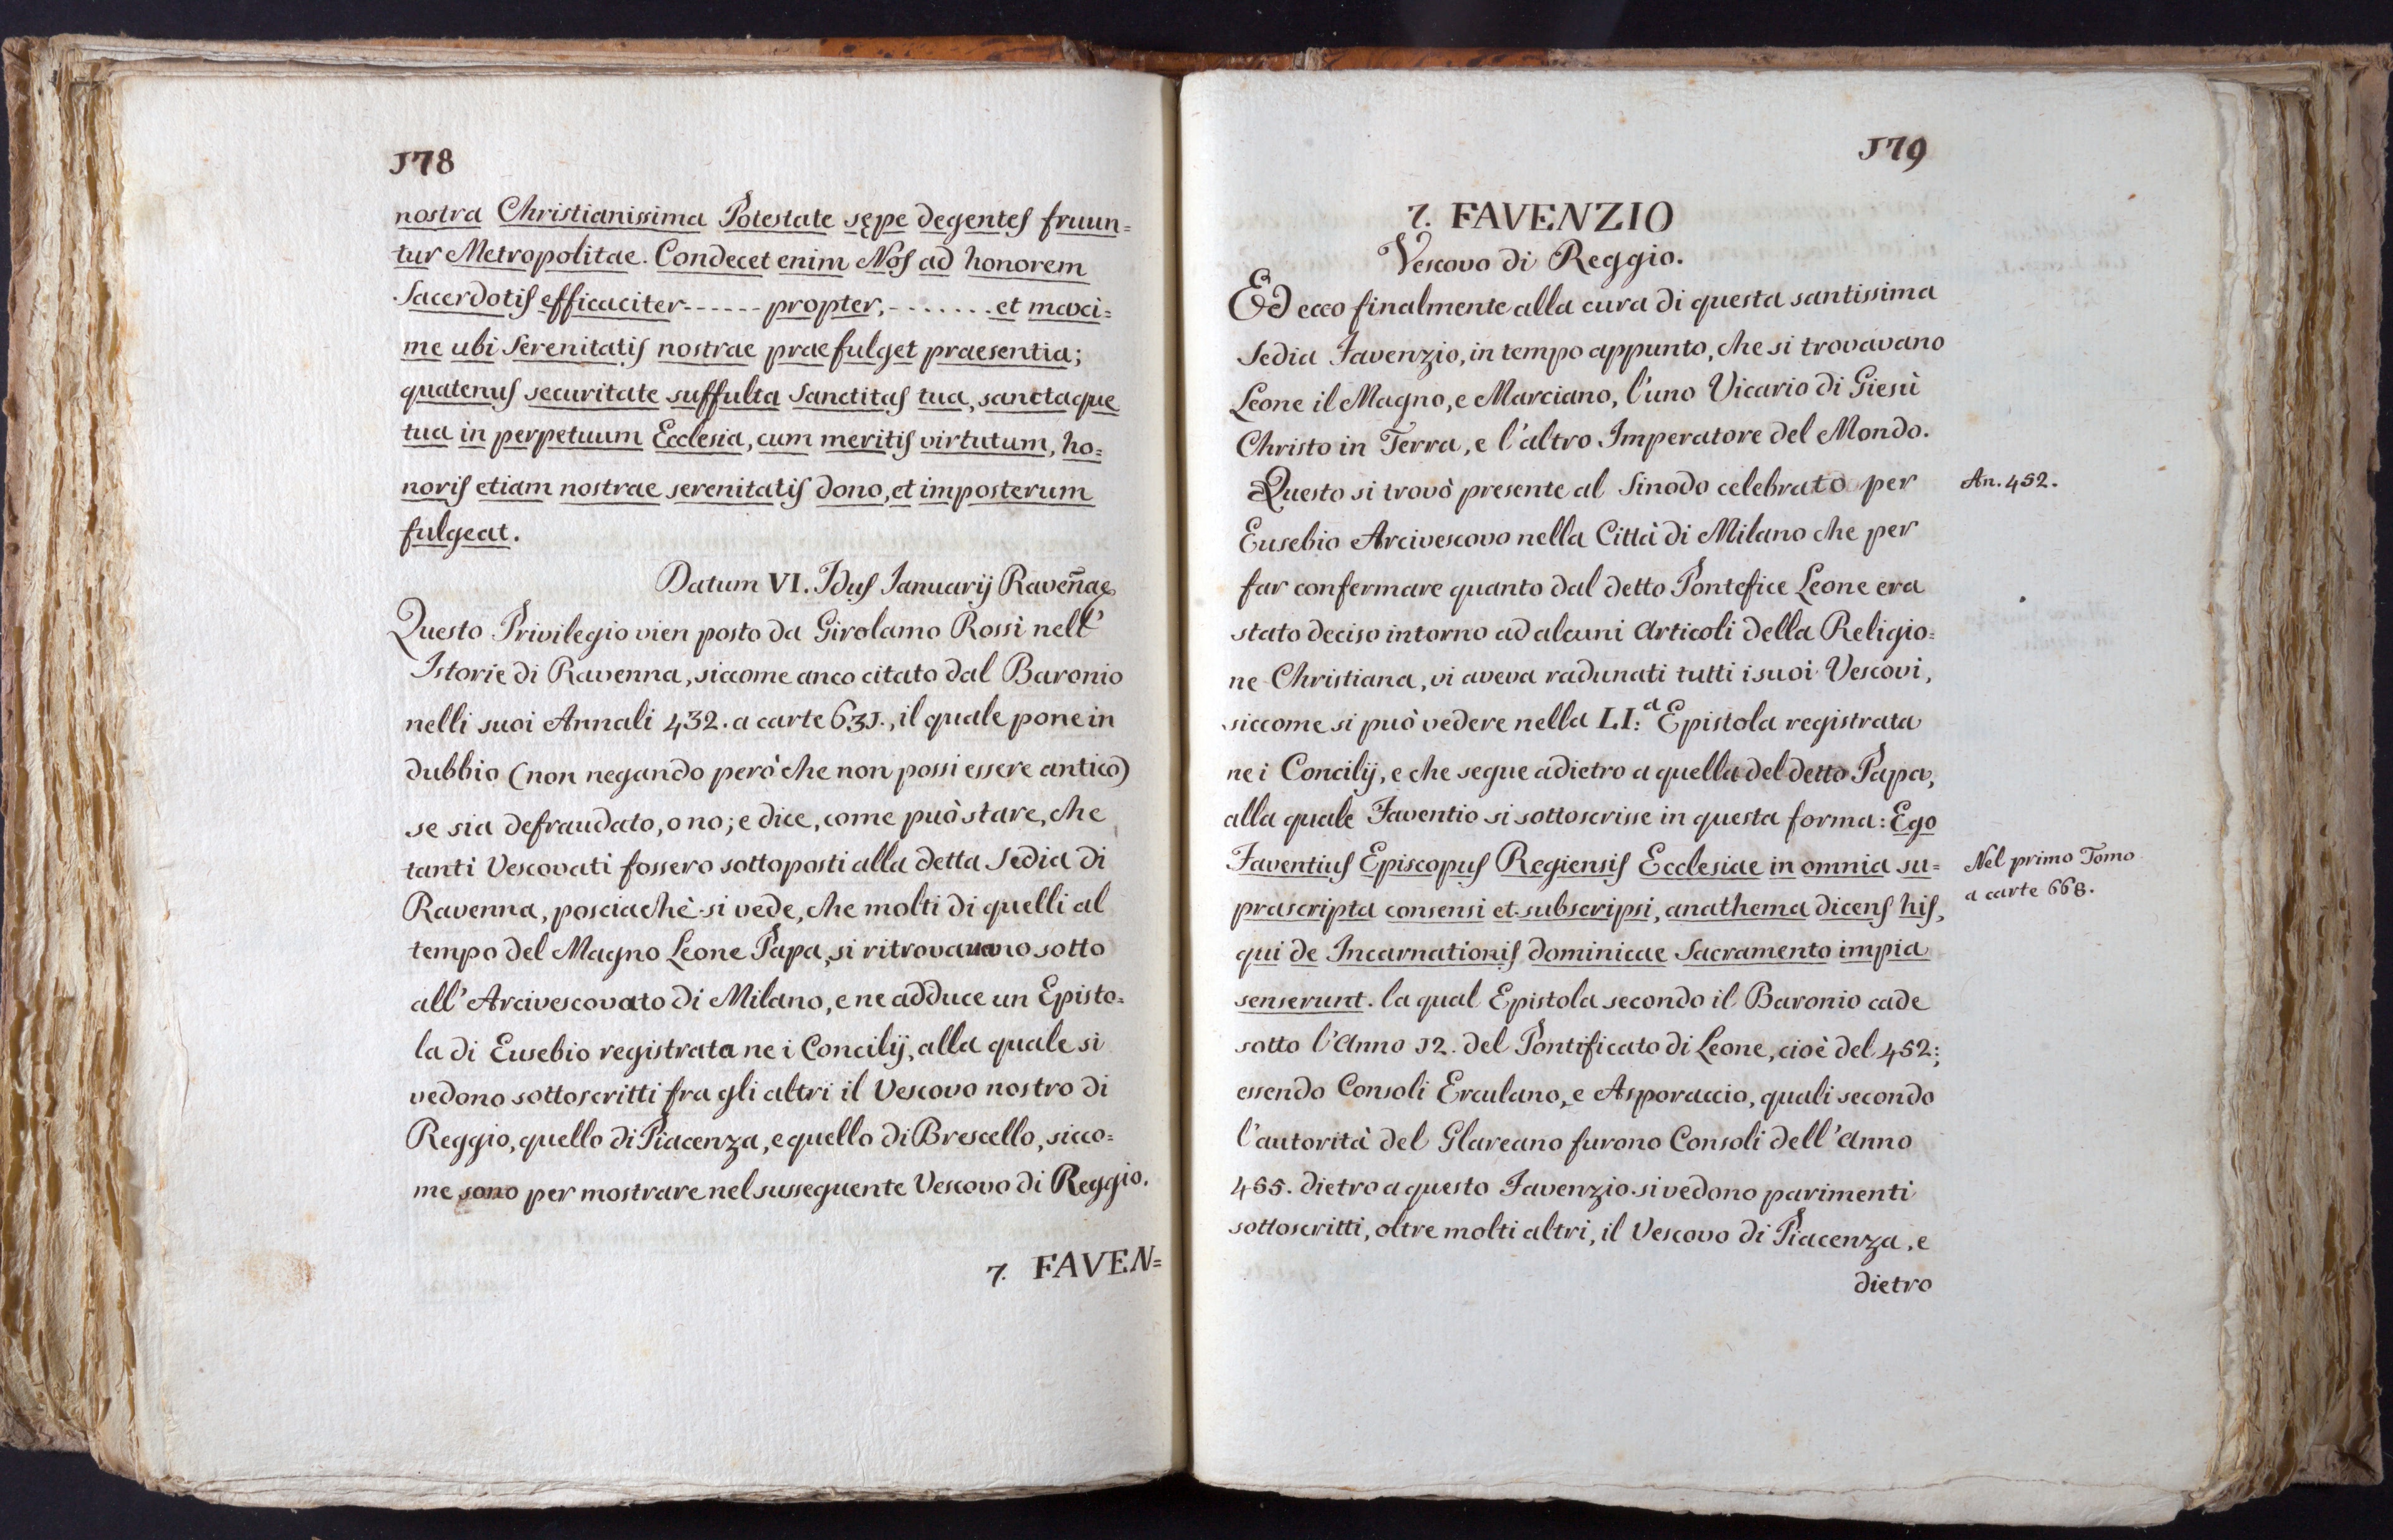 178
nostra Christianissima Potestate sępe degentes fruun=
tur Metropolitae. Condecet enim Nos ad honorem
Sacerdotis efficaciter------propter,-.......et maxi=
me ubi Serenitatis nostrae praefulget praesentia;
quatenus securitate suffulta Sanctitas tua, sanctaque
tua in perpetuum Ecclesia, cum meritis virtutum, ho=
noris etiam nostrae serenitatis dono, et imposterum
fulgeat.
Datum VI. Idus Ianuarij Raveñae
Questo Privilegio vien posto da Girolamo Rossi nell'
Istorie di Ravenna, siccome anco citato dal Baronio
nelli suoi Annali 432. a carte 631., il quale pone in
dubbio (non negando però che non possi essere antico)
se sia defraudato, o no; e dice, come può stare, che
tanti Vescovati fossero sottoposti alla detta Sedia di
Ravenna, posciachè si vede, che molti di quelli al
tempo del Magno Leone Papa, si ritrovavano sotto
all' Arcivescovato di Milano, e ne adduce un Episto=
la di Eusebio registrata ne i Concilij, alla quale si
vedono sottoscritti fra gli altri il Vescovo nostro di
Reggio, quello di Piacenza, e quello di Brescello, sicco=
me sono per mostrare nel susseguente Vescovo di Reggio.
7. FAVEN=
179
7. FAVENZIO
Vescovo di Reggio.
Ed ecco finalmente alla cura di questa santissima
Sedia Favenzio, in tempo appunto, che si trovavano
Leone il Magno, e Marciano, l'uno Vicario di Giesù
Christo in Terra, e l'altro Imperatore del Mondo.
Questo si trovò presente al Sinodo celebrato per
An. 452.
Eusebio Arcivescovo nella Città di Milano che per
far confermare quanto dal detto Pontefice Leone era
stato deciso intorno ad alcuni Articoli della Religio=
ne Christiana, vi aveva radunati tutti i suoi Vescovi,
siccome si può vedere nella LI:ª Epistola registrata
ne i Concilij, e che segue adietro a quella del detto Papa,
alla quale Faventio si sottoscrisse in questa forma: Ego
Faventius Episcopus Regiensis Ecclesiae in omnia su=
Nel primo Tomo
prascripta consensi et subscripsi, anathema dicens his,
a carte 668.
qui de Incarnationis dominicae Sacramento impia
senserunt. la qual Epistola secondo il Baronio cade
sotto l'Anno 12. del Pontificato di Leone, cioè del 452:,
essendo Consoli Erculano, e Asporaccio, quali secondo
l'autorità del Glareano furono Consoli dell'Anno
455. dietro a questo Favenzio si vedono parimenti
sottoscritti, oltre molti altri, il Vescovo di Piacenza, e
dietro